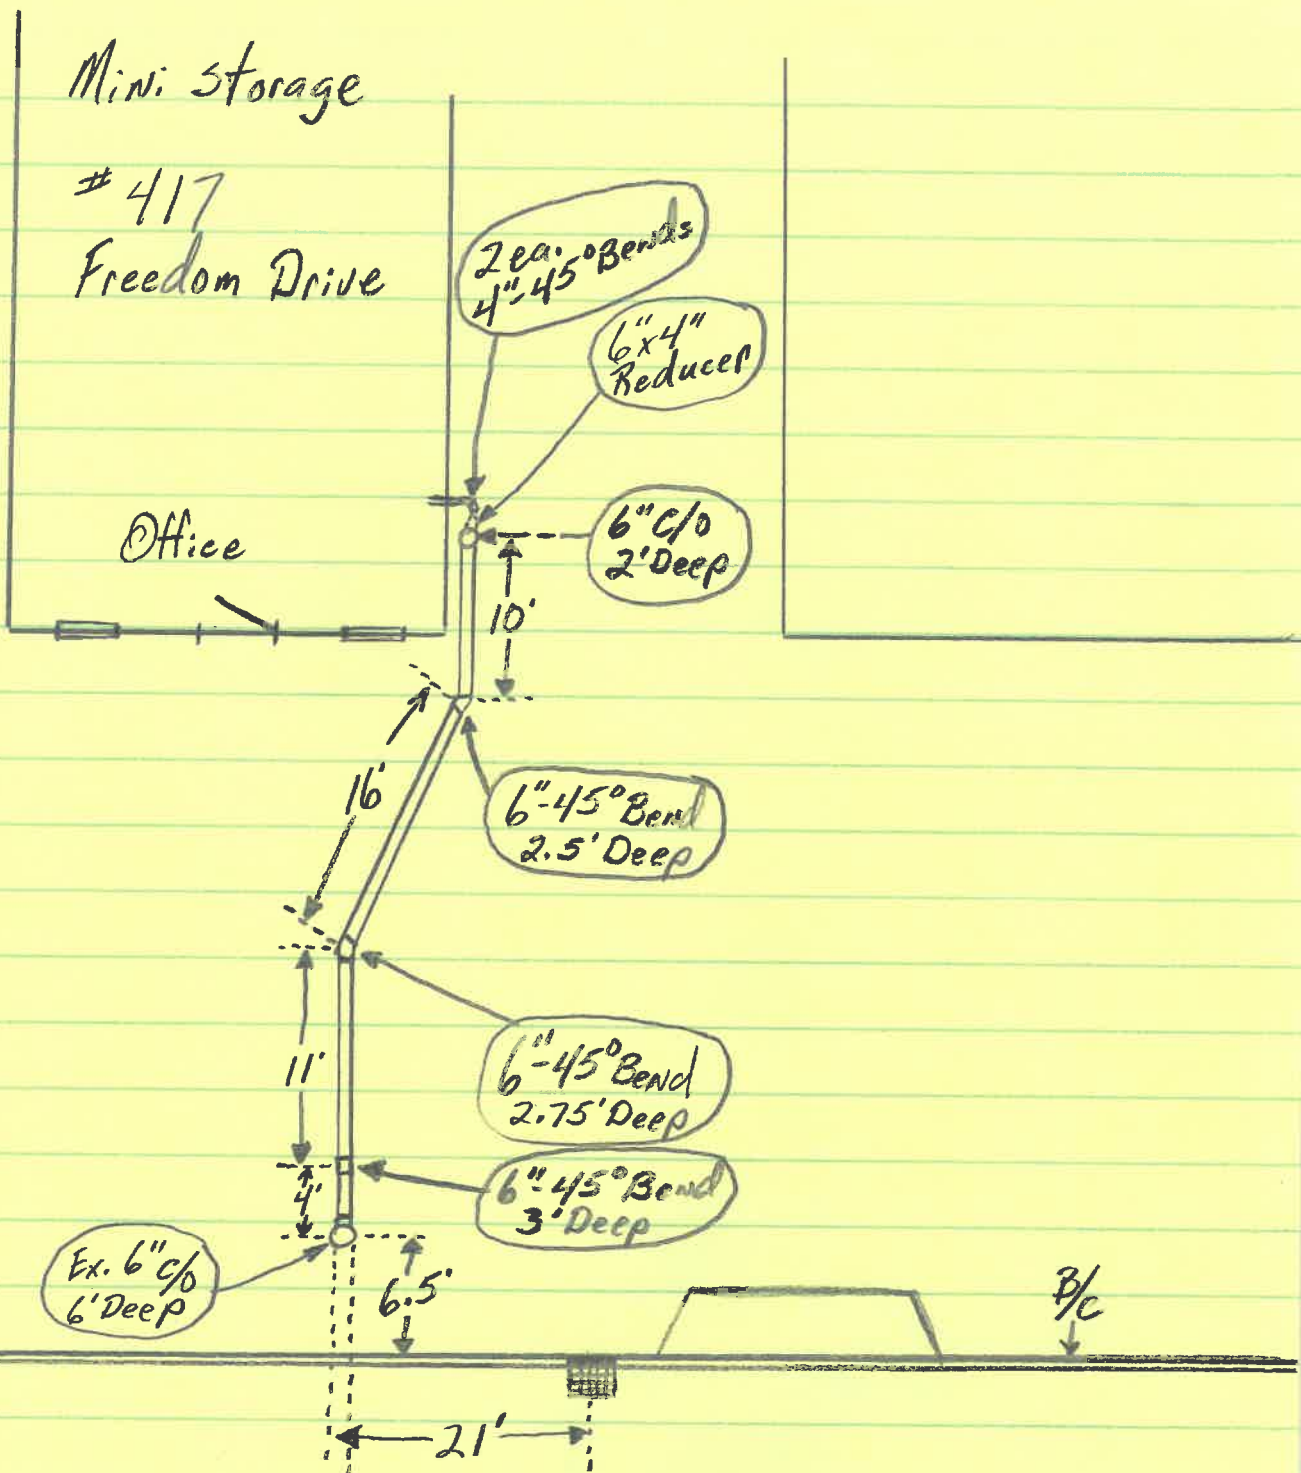 Mini Storage
# 417
Freedom Drive
2 ea.
4"-45° Bends
6"x4"
Reducer
Office
6" C/O
2' Deep
10'
16'
6"-45° Bend
2.5' Deep
11'
6"-45° Bend
2.75' Deep
4'
6"-45° Bend
3' Deep
Ex. 6" c/o
6' Deep
6.5'
B/C
21'